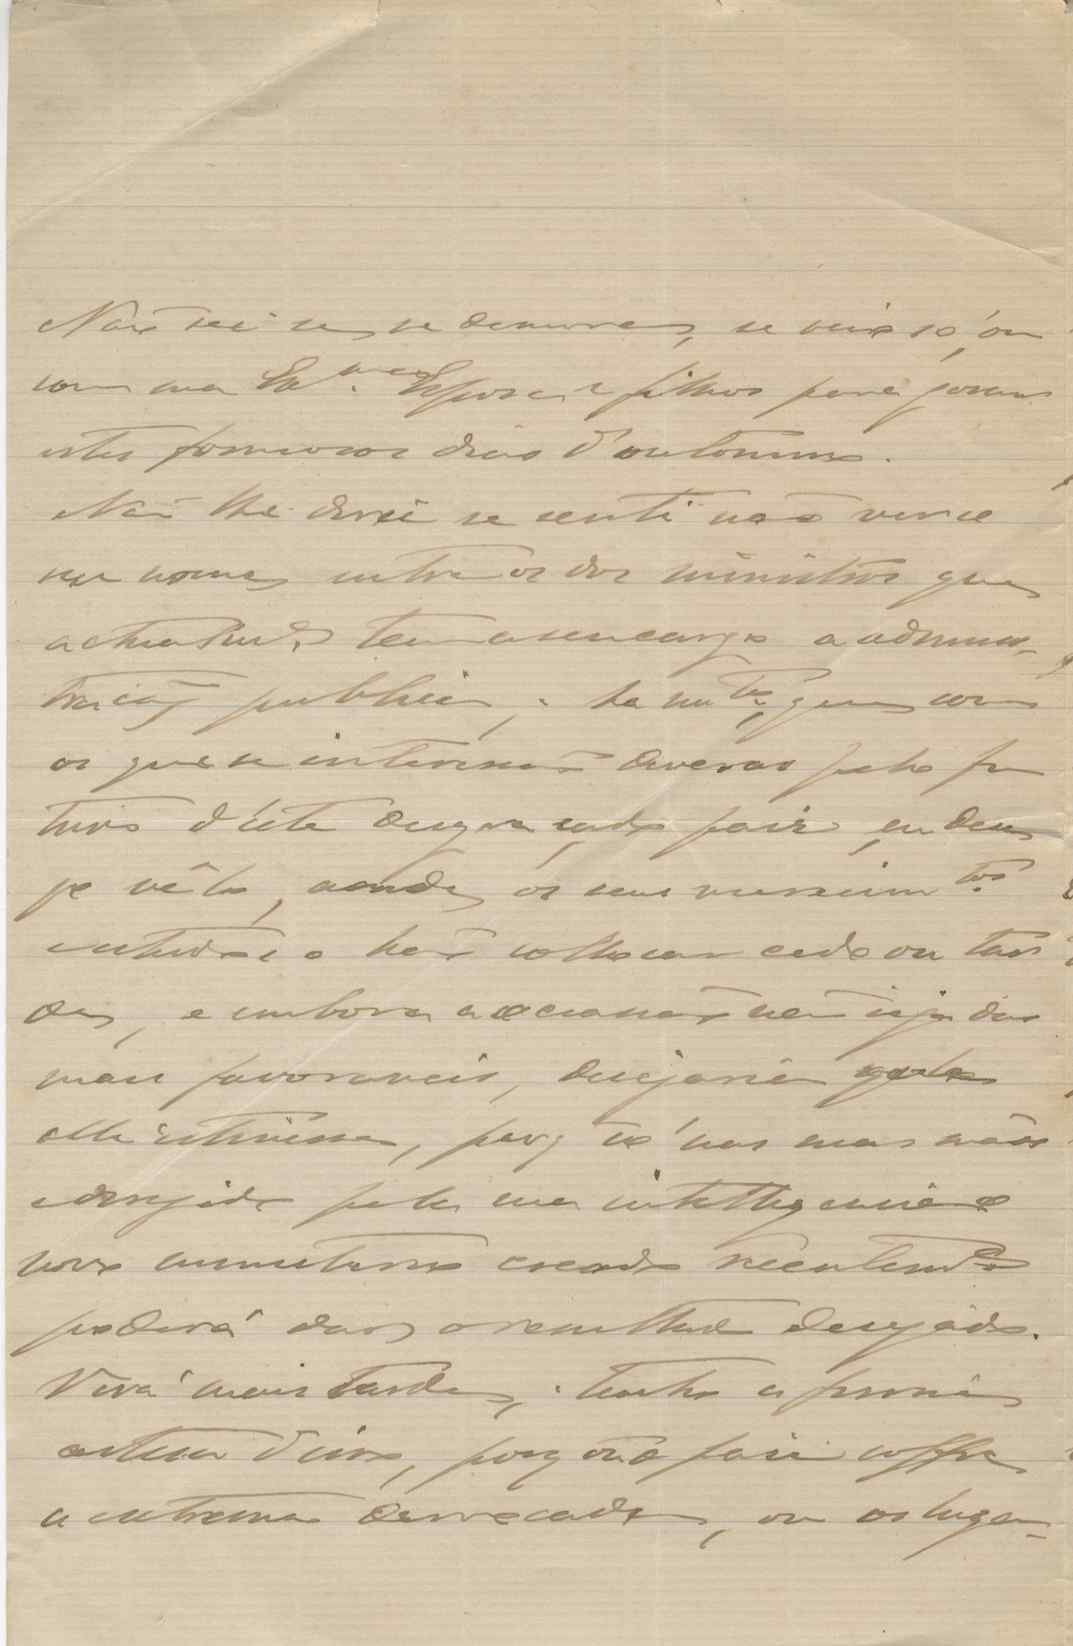 Não sei se se demora, se veio só, ou
com sua Ex.ma Esposa e filhos para gosar
estes formosos dias d'outonno.
Não lhe direi se senti não ver o
seu nome entre os dos ministros que
actualm.te tem a seu cargo a adminis-
tração publica; ha m.tos, que como
os que se interessão deveras pelo fu
turo d'este desgraçado paiz,
vêl-o, aonde os seus merecim.tos
o hão collocar cedo ou tar
de, e embora a occasião não seja das
mais favoraveis, desejaria
elle estivesse, porq só nas suas mãos
e dirigido pela sua intelligencia o
novo ministerio creado
poderá dar o resultado desejado.
Virá mais tarde; tenho a firme
certesa d'isso, porq ou o paiz soffre
a extrema derrocada, ou os luga-